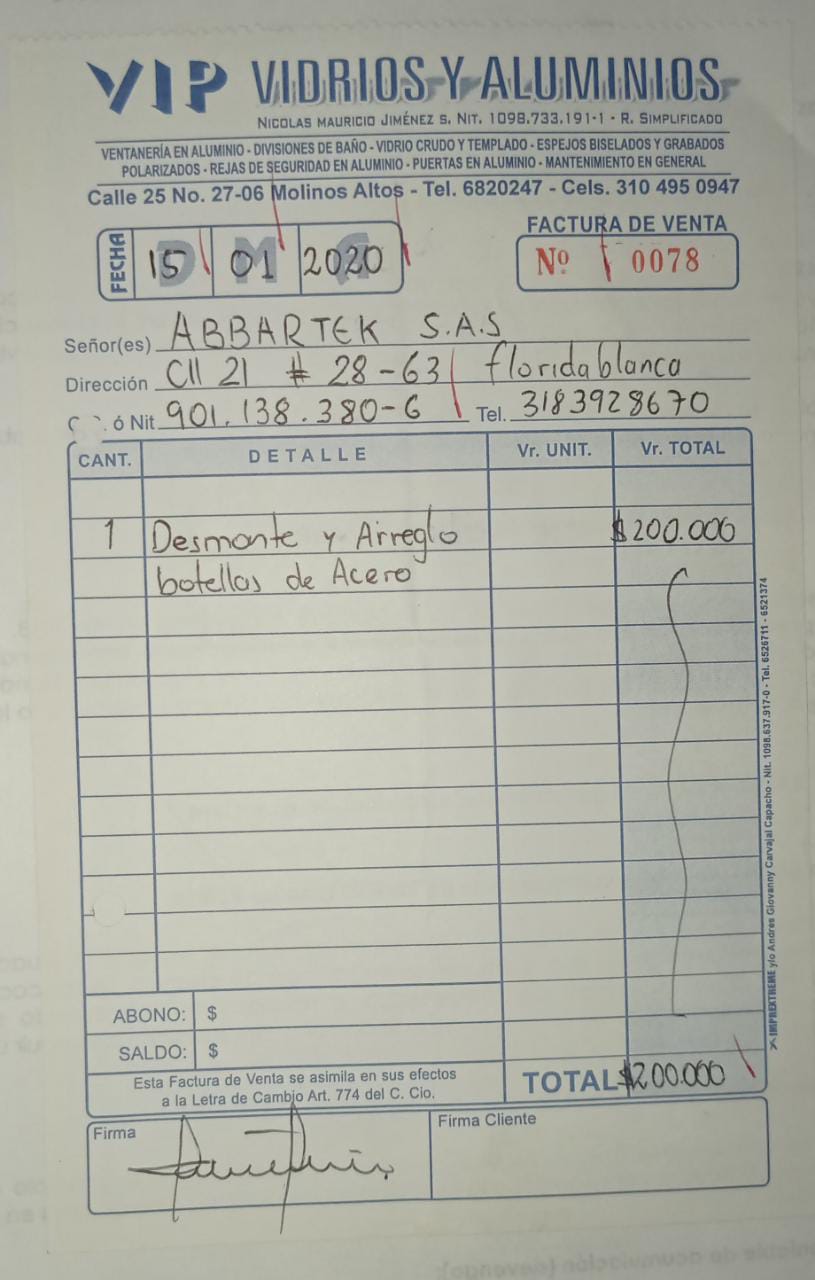 VIP VIDRIOS Y ALUMINIOS
NICOLAS MAURICIO JIMÉNEZ S. NIT. 1098.733.191-1 - R. SIMPLIFICADO
VENTANERÍA EN ALUMINIO - DIVISIONES DE BAÑO - VIDRIO CRUDO Y TEMPLADO - ESPEJOS BISELADOS Y GRABADOS
POLARIZADOS - REJAS DE SEGURIDAD EN ALUMINIO - PUERTAS EN ALUMINIO - MANTENIMIENTO EN GENERAL
Calle 25 No. 27-06 Molinos Altos - Tel. 6820247 - Cels. 310 495 0947
FACTURA DE VENTA
FECHA D 15 M 01 A 2020
Nº 0078
Señor(es) ABBARTEK S.A.S
Dirección Cll 21 # 28-63 floridablanca
ó Nit 901.138.380-6 Tel. 3183928670
CANT. DETALLE Vr. UNIT. Vr. TOTAL
1 Desmonte y Arreglo $200.000
botellas de Acero
ABONO: $
SALDO: $
Esta Factura de Venta se asimila en sus efectos
a la Letra de Cambio Art. 774 del C. Cio.
TOTAL $200.000
Firma
Firma Cliente
IMPREXTREME y/o Andres Giovanny Carvajal Capacho - Nit. 1098.637.917-0 - Tel. 6526711 - 6521374